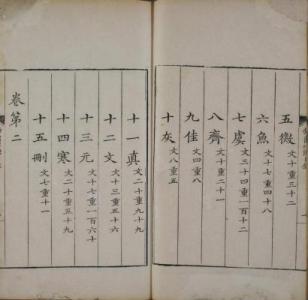 五微 文十重三十二
六魚 文十七重四十八
七虞 文三十四重一百十二
八齊 文十重二十一
九佳 文四重八
十灰 文八重五
十一真 文二十重九十九
十二文 文十三重五十六
十三元 文十七重一百六十
十四寒 文二十重五十九
十五刪 文七重十一
卷第二